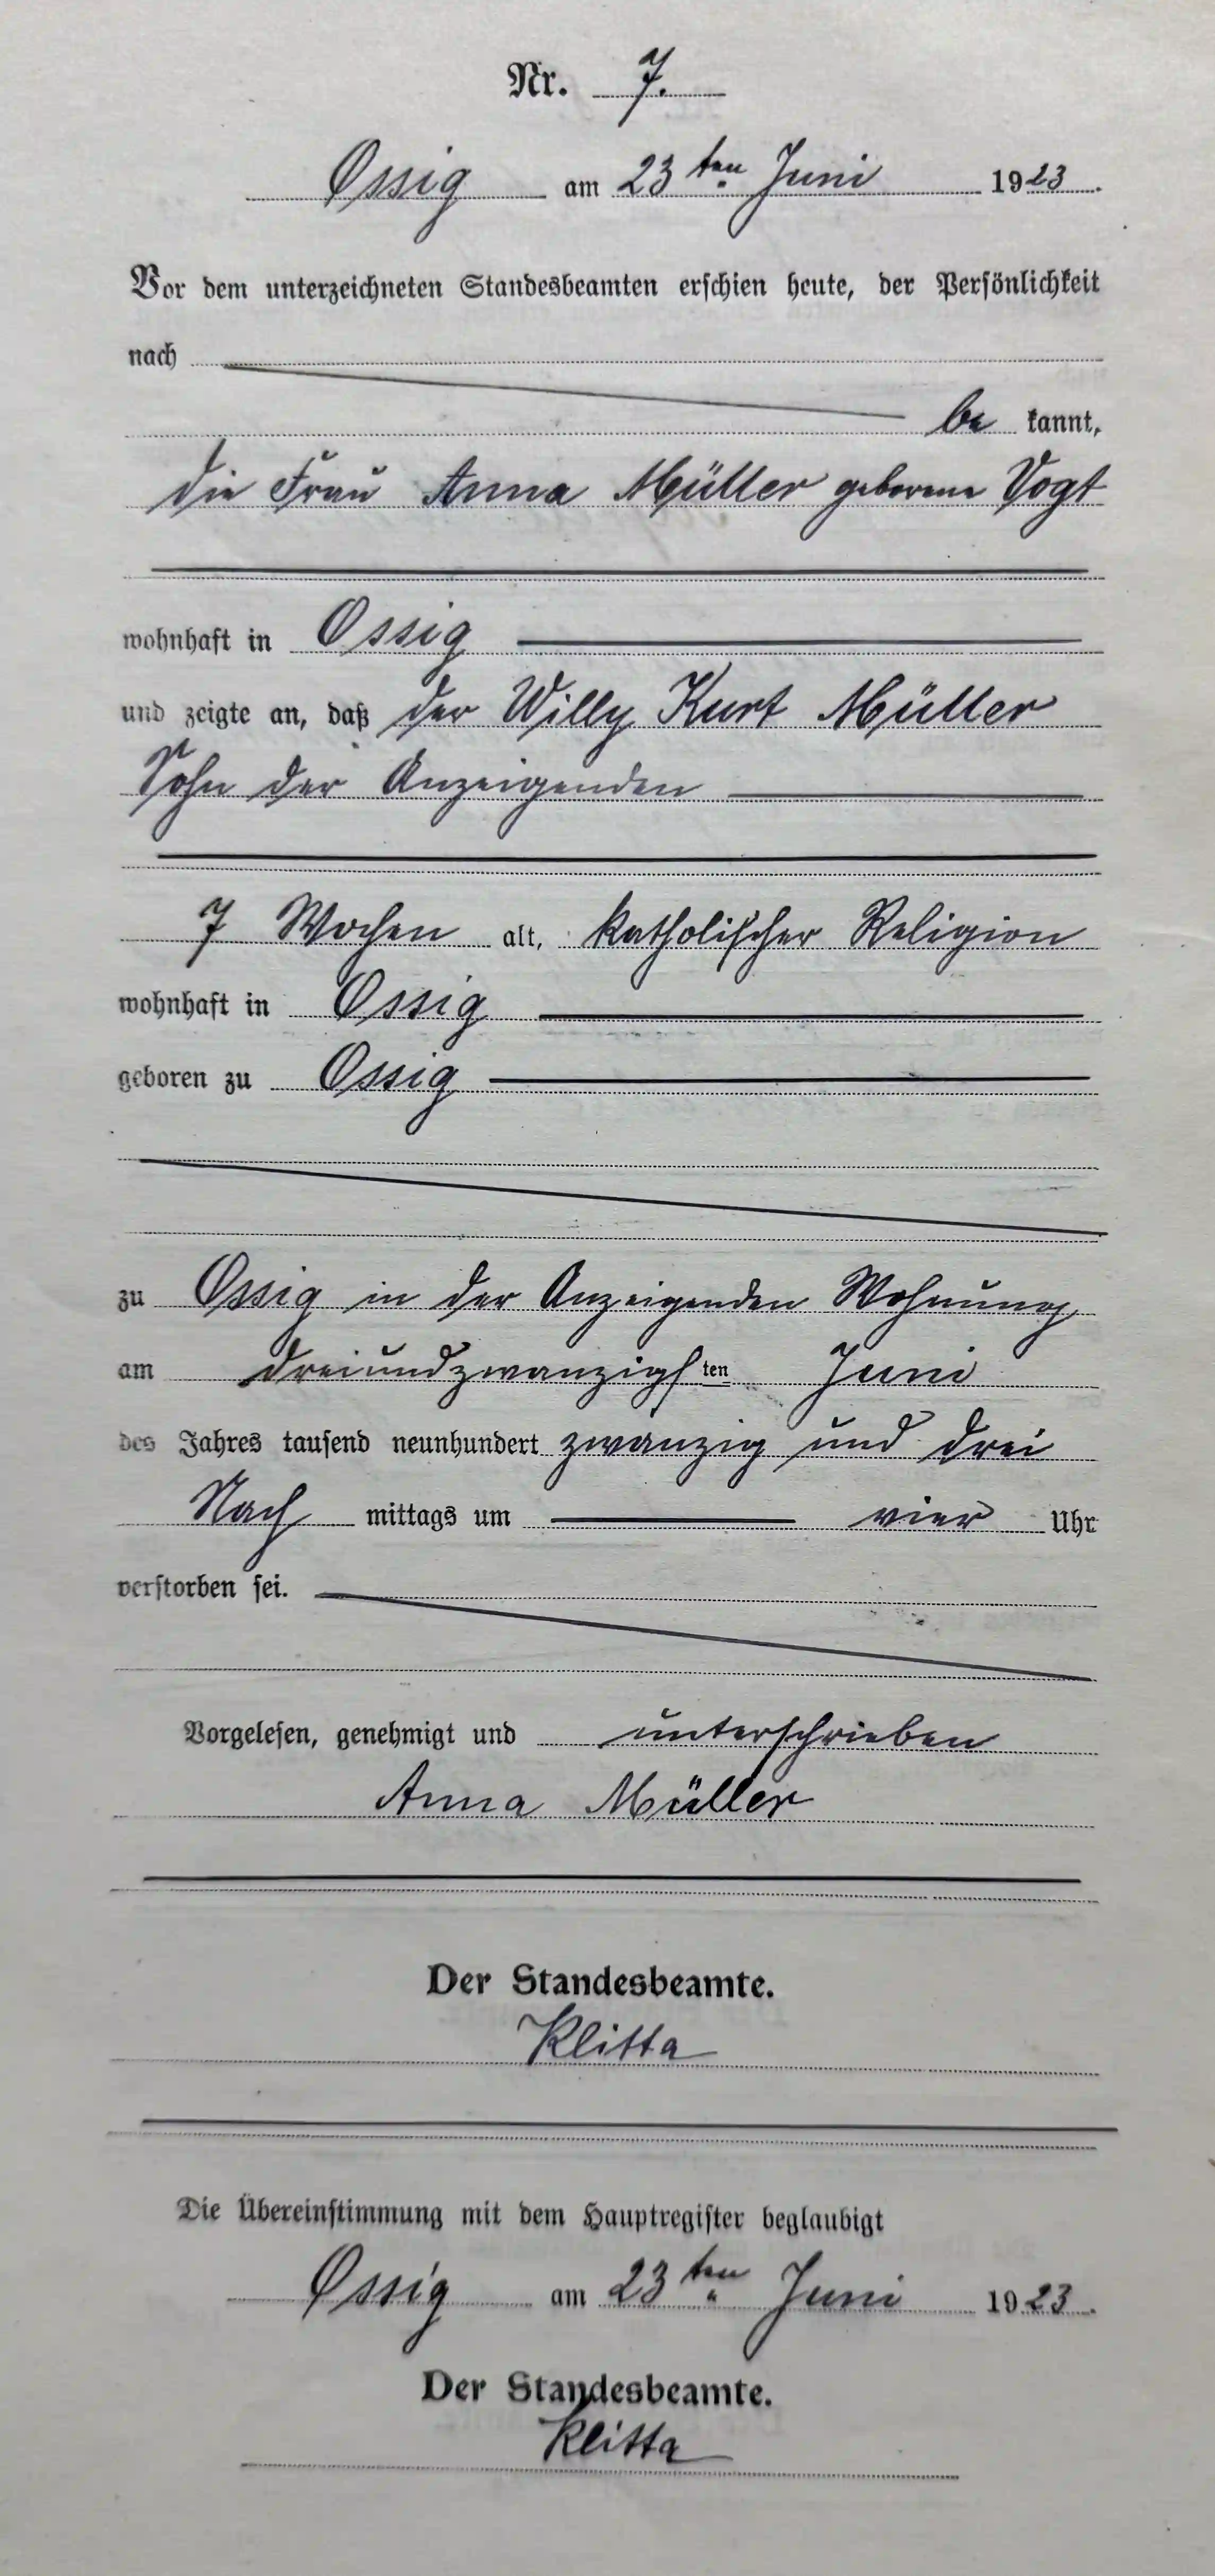 Nr. 7.
Ossig am 23ten Juni 1923.
Vor dem unterzeichneten Standesbeamten erschien heute, der Persönlichkeit
nach
be kannt,
die Frau Anna Müller geborene Vogt
wohnhaft in Ossig
und zeigte an, daß der Willy Kurt Müller
Sohn der Anzeigenden
7 Wochen alt, katholischer Religion
wohnhaft in Ossig
geboren zu Ossig
zu Ossig in der Anzeigenden Wohnung
am dreiundzwanzigsten Juni
des Jahres tausend neunhundert zwanzig und drei
Nach mittags um vier Uhr
verstorben sei.
Vorgelesen, genehmigt und unterschrieben
Anna Müller
Der Standesbeamte.
Klitta
Die Übereinstimmung mit dem Hauptregister beglaubigt
Ossig am 23ten Juni 1923.
Der Standesbeamte.
Klitta